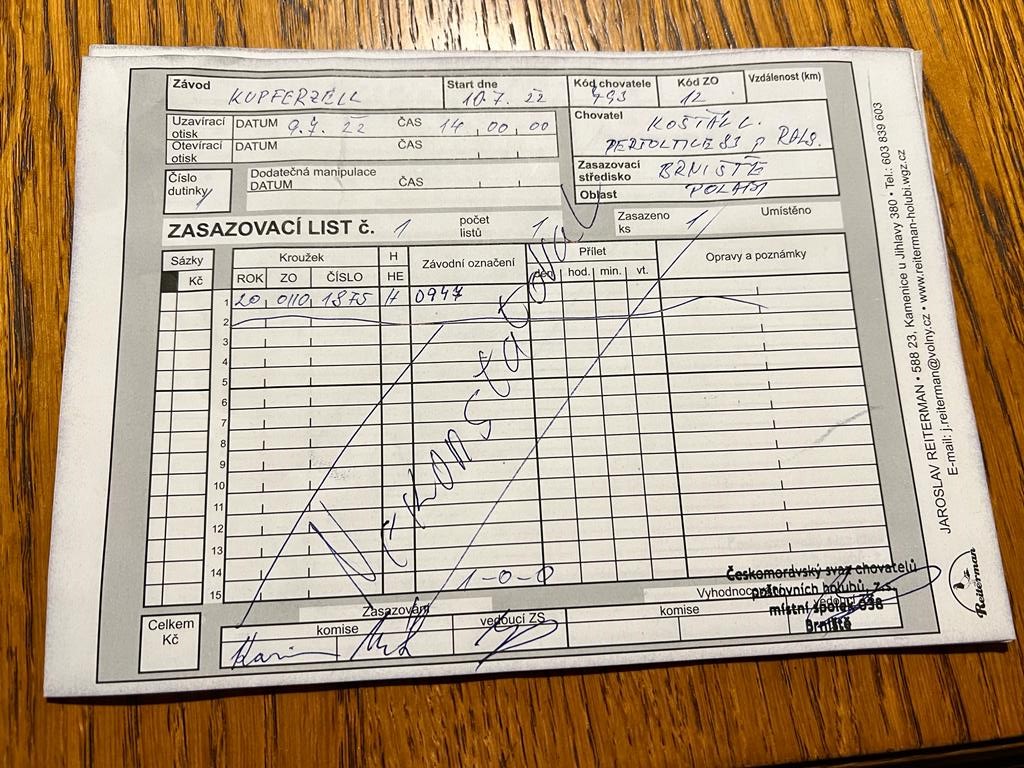 Závod KUPFERZELL Start dne 10.7. 22 Kód chovatele 793 Kód ZO 12 Vzdálenost (km)
Uzavírací otisk DATUM 9.7. 22 ČAS 14 00 00
Otevírací otisk DATUM ČAS
Chovatel KOŠŤÁL L.
Číslo dutinky 1
Dodatečná manipulace
DATUM ČAS
Zasazovací středisko BRNIŠTĚ
Oblast
ZASAZOVACÍ LIST č. 1 počet listů 1 Zasazeno ks 1 Umístěno
Sázky Kroužek H Závodní označení Přílet Opravy a poznámky
Kč ROK ZO ČÍSLO HE den hod. min. vt.
1 20 0110 1875 H 0947
2
3
4
5
6
7
8
9
10
11
12
13
14
15
Nekonstatoval
1-0-0
Celkem Kč
Zasazování
komise vedoucí ZS
komise
Českomoravský svaz chovatelů
poštovních holubů, z.s.
místní spolek 038
Brniště
JAROSLAV REITERMAN • 588 23, Kamenice u Jihlavy 380 • Tel.: 603 839 603
E-mail: j.reiterman@volny.cz • www.reiterman-holubi.wgz.cz
Reiterman